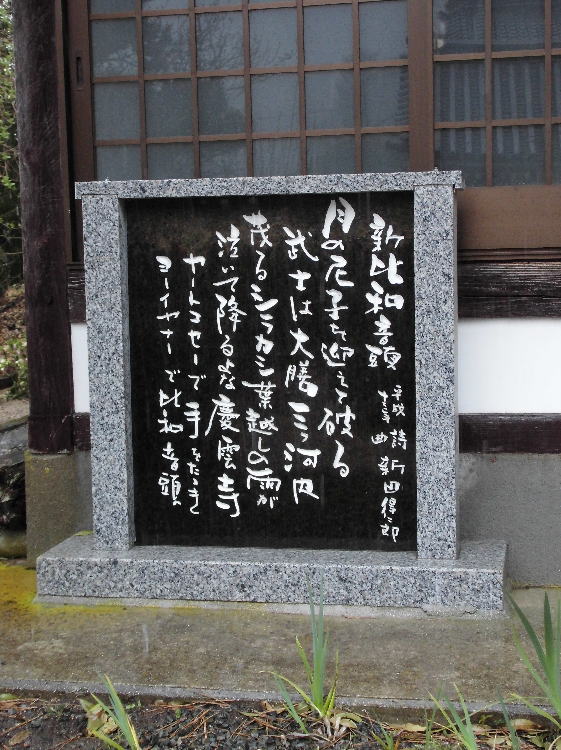 新比和音頭
平成
詩曲 新田得二郎
月の尼子を迎えて破る
武士は大膳三河内
茂るシラカシ葉越しの雨が
泣いて降るよな慶雲寺
ヤートコセーで手をたたきて
ヨーイヤナーで比和音頭